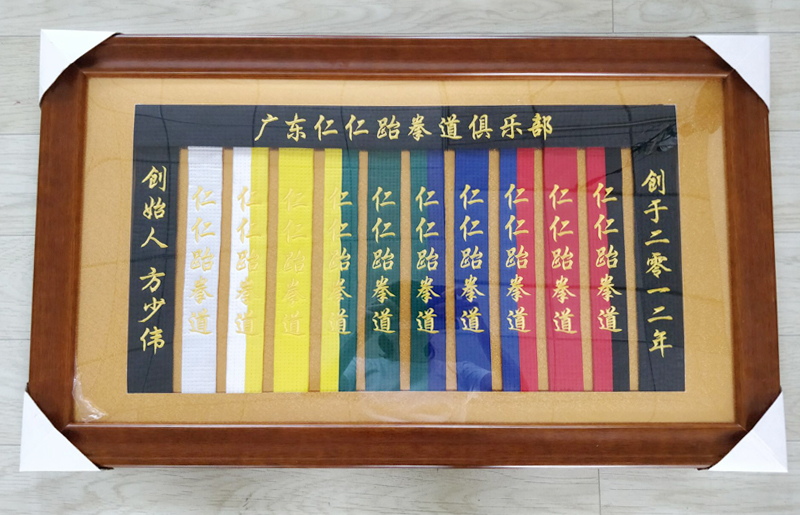 广东仁仁跆拳道俱乐部
创始人 方少伟
仁仁跆拳道
仁仁跆拳道
仁仁跆拳道
仁仁跆拳道
仁仁跆拳道
仁仁跆拳道
仁仁跆拳道
仁仁跆拳道
仁仁跆拳道
仁仁跆拳道
创于二零一二年